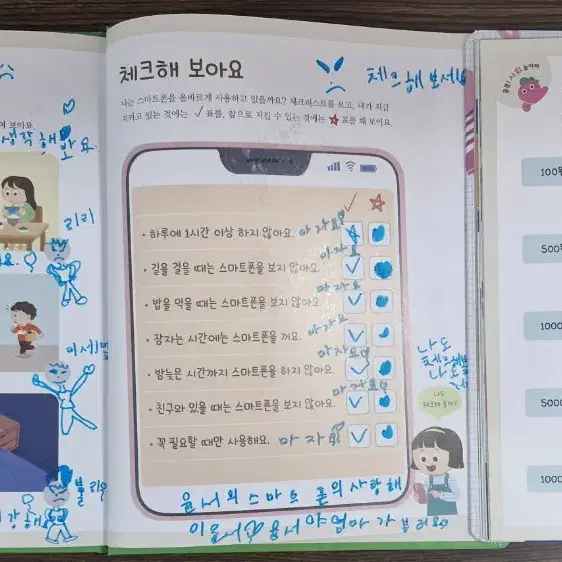 체크해 보아요
체크 해 보세요
나는 스마트폰을 올바르게 사용하고 있을까요? 체크리스트를 보고, 내가 지금
지키고 있는 것에는 ✓ 표를, 앞으로 지킬 수 있는 것에는 ☆ 표를 해 보아요.
하루에 1시간 이상 하지 않아요. 마자요
길을 걸을 때는 스마트폰을 보지 않아요. 마자요
밥을 먹을 때는 스마트폰을 보지 않아요. 마자요
잠자는 시간에는 스마트폰을 꺼요. 마자요
밤늦은 시간까지 스마트폰을 하지 않아요. 마자요
친구와 있을 때는 스마트폰을 보지 않아요. 마자요
꼭 필요할 때만 사용해요. 마자
나도
체크해볼까?
나도
체크해
나도
스마트 폰의 사랑해
여 보아요.
생각해봐요
리리
미세
100
500
1000
5000
1000